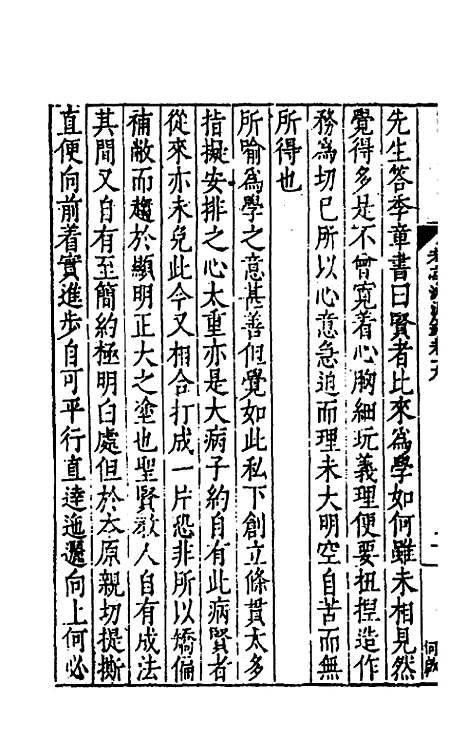 先生答季章書曰賢者比來爲學如何雖未相見然
覺得多是不曾寬着心胸細玩義理便要扭揑造作
務爲切己所以心意急迫而理未大明空自苦而無
所得也
所喻爲學之意甚善但覺如此私下創立條貫太多
指擬安排之心太重亦是大病子約自有此病賢者
從來亦未免此今又相合打成一片恐非所以矯偏
補敝而趨於顯明正大之塗也聖賢敎人自有成法
其間又自有至簡約極明白處但於本原親切提撕
直便向前着實進步自可平行直達迤邐向上何必